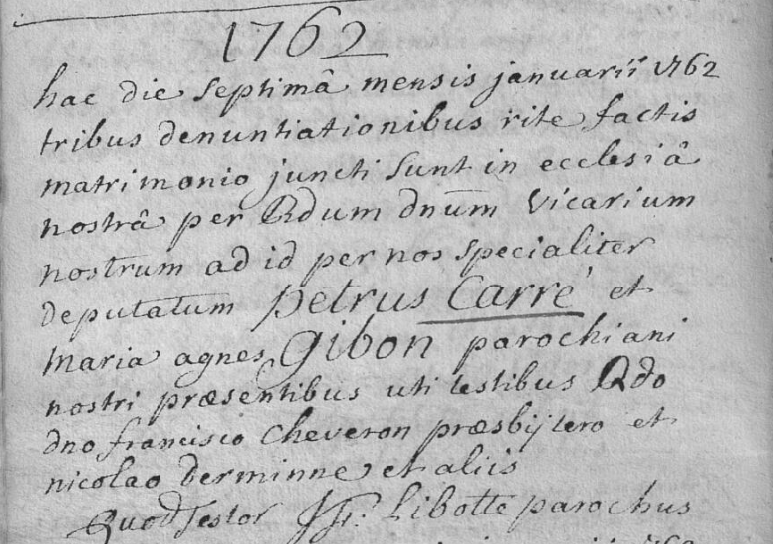 1762
hac die septimâ mensis januarii 1762
tribus denuntiationibus rite factis
matrimonio juncti sunt in ecclesiâ
nostrâ per Rdum dnum vicarium
nostrum ad id per nos specialiter
deputatum petrus Carré et
maria agnes Gibon parochiani
nostri præsentibus uti testibus Rdo
dno francisco Cheveron præsbijtero et
nicolao Derminne et aliis
Quod Testor Libotte parochus